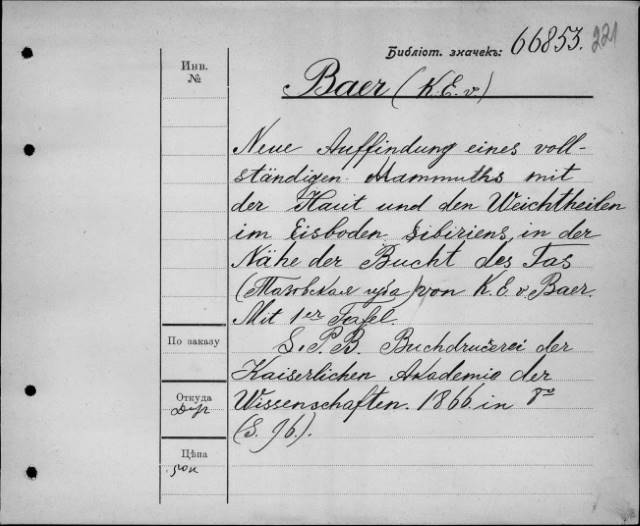 Библіот. значекъ: 66853. 221
Инв.
№
Baer (K. E. v.)
Neue Auffindung eines voll-
ständigen Mammuths mit
der Haut und den Weichtheilen
im Eisboden Sibiriens, in der
Nähe der Bucht des Tas
(Тазовская губа) von K. E. v. Baer.
Mit 1er Tafel.
По заказу
S. P. B. Buchdruckerei der
Kaiserlichen Akademie der
Откуда
Wissenschaften. 1866. in 8º
(S. 96.).
Цѣна